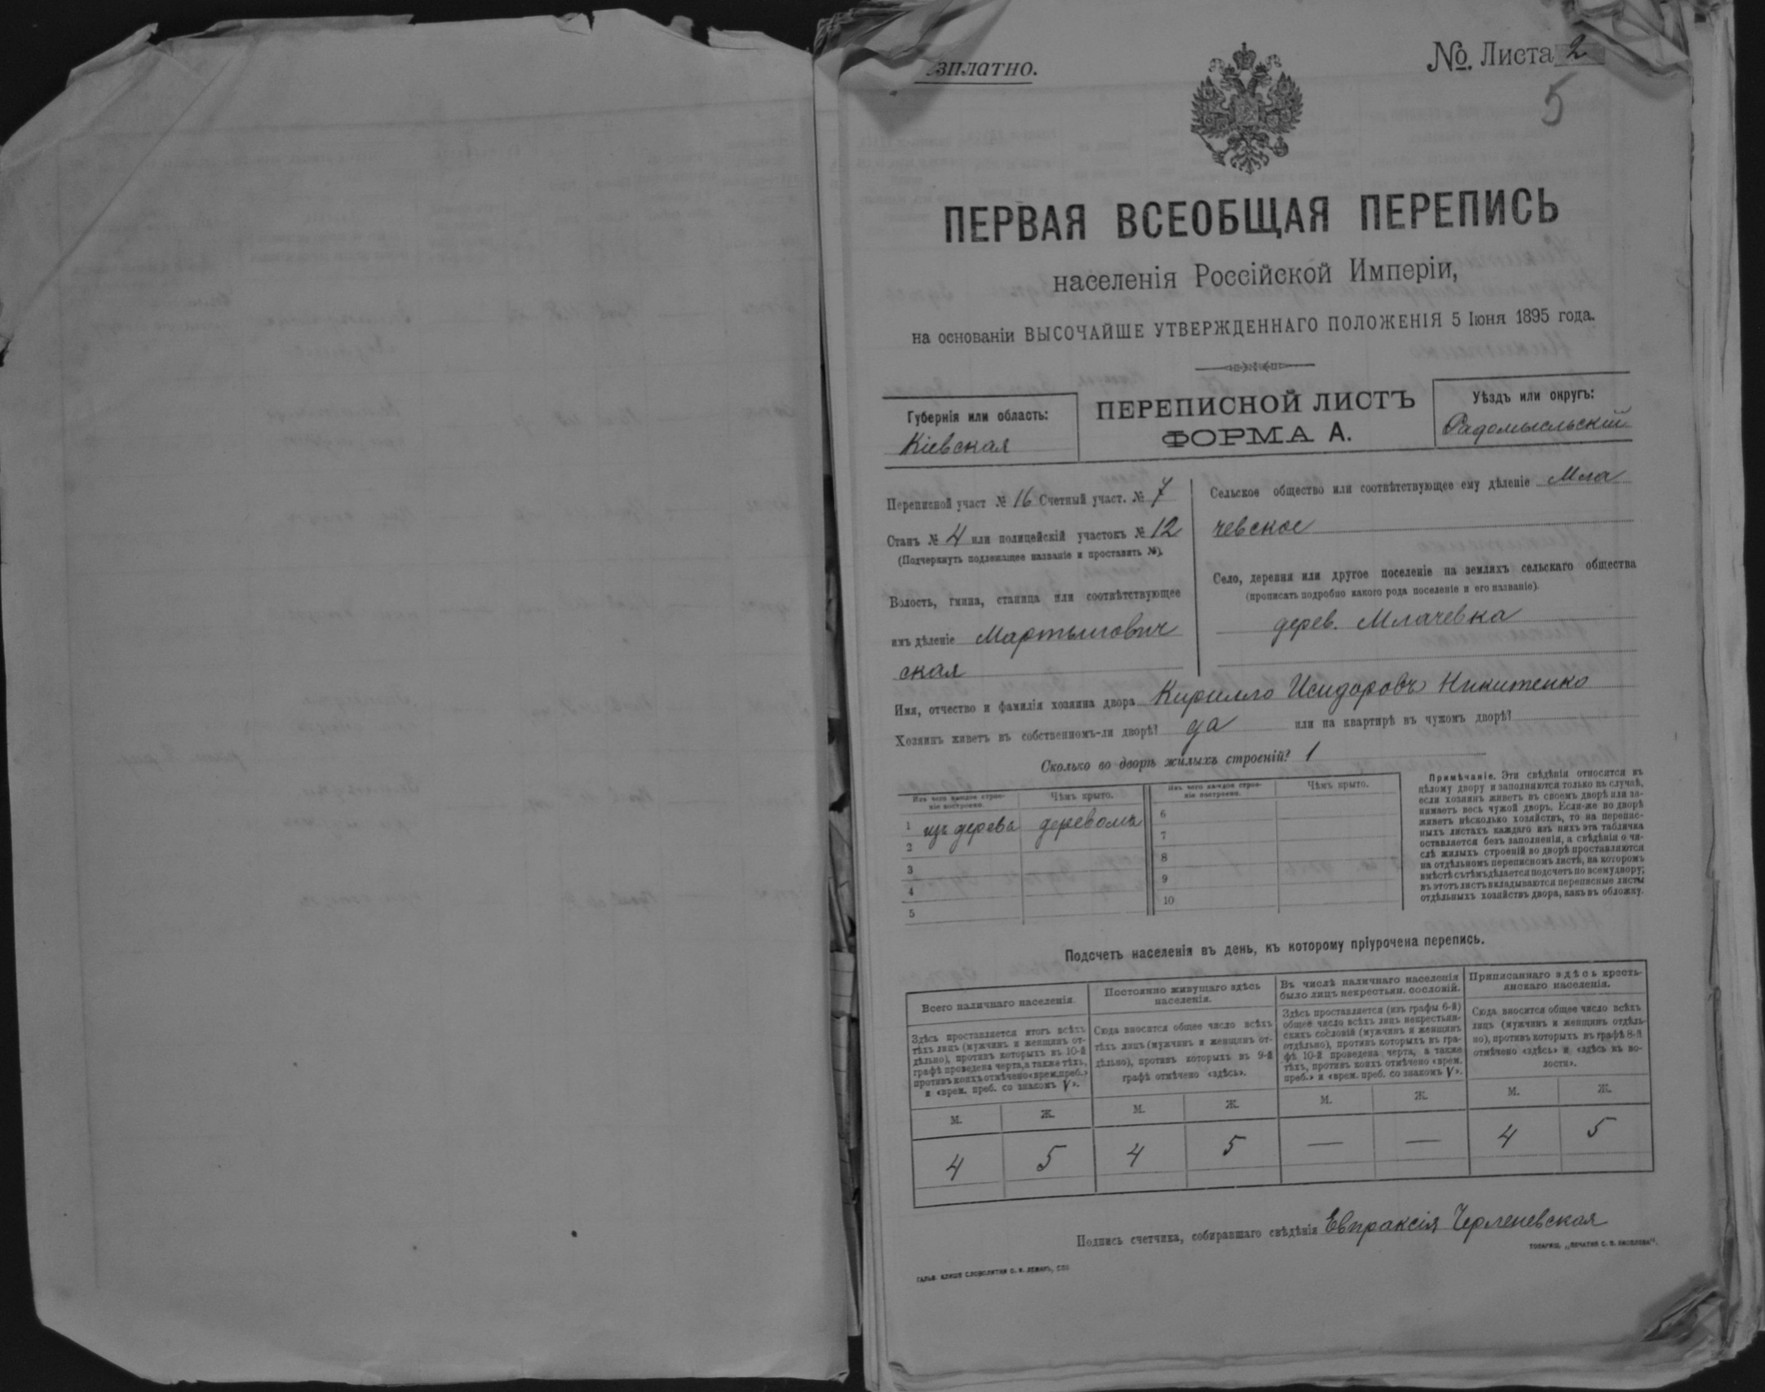 зплатно.
№. Листа 2
5
ПЕРВАЯ ВСЕОБЩАЯ ПЕРЕПИСЬ
населенія Россійской Имперіи,
на основаніи ВЫСОЧАЙШЕ УТВЕРЖДЕННАГО ПОЛОЖЕНІЯ 5 Іюня 1895 года.
Губернія или область:
Кіевская
ПЕРЕПИСНОЙ ЛИСТЪ
ФОРМА А.
Уѣздъ или округъ:
Радомысльскій
Переписной участ № 16 Счетный участ. № 7
Станъ № 4 или полицейскій участокъ № 12
(Подчеркнуть подлежащее названіе и проставить №).
Волость, гмина, станица или соотвѣтствующее
имъ дѣленіе Мартынович
ская
Сельское общество или соотвѣтствующее ему дѣленіе Мла
чевское
Село, деревня или другое поселеніе на земляхъ сельскаго общества
(прописать подробно какого рода поселеніе и его названіе).
дерев. Млачевка
Имя, отчество и фамилія хозяина двора Кирилло Исидоровъ Никитенко
Хозяинъ живетъ въ собственномъ-ли дворѣ? да или на квартирѣ въ чужомъ дворѣ?
Сколько во дворѣ жилыхъ строеній? 1
Изъ чего каждое строе-
ніе построено.
Чѣмъ крыто.
1 изъ дерева деревомъ
2
3
4
5
Изъ чего каждое строе-
ніе построено.
Чѣмъ крыто.
6
7
8
9
10
Примѣчаніе. Эти свѣдѣнія относятся къ
цѣлому двору и заполняются только въ случаѣ,
если хозяинъ живетъ въ своемъ дворѣ или за-
нимаетъ весь чужой дворъ. Если-же во дворѣ
живетъ нѣсколько хозяйствъ, то на перепис-
ныхъ листахъ каждаго изъ нихъ эта табличка
оставляется безъ заполненія, а свѣдѣнія о чи-
слѣ жилыхъ строеній во дворѣ проставляются
на отдѣльномъ переписномъ листѣ, на которомъ
вмѣстѣ съ тѣмъ дѣлается подсчетъ по всему двору;
въ этотъ листъ вкладываются переписные листы
отдѣльныхъ хозяйствъ двора, какъ въ обложку.
Подсчетъ населенія въ день, къ которому пріурочена перепись.
Всего наличнаго населенія.
Здѣсь проставляется итогъ всѣхъ
тѣхъ лицъ (мужчинъ и женщинъ от-
дѣльно), противъ которыхъ въ 10-й
графѣ проведена черта, а также тѣхъ,
противъ коихъ отмѣчено «врем. преб.»
и «врем. преб. со знакомъ V».
Постоянно живущаго здѣсь
населенія.
Сюда вносится общее число всѣхъ
тѣхъ лицъ (мужчинъ и женщинъ от-
дѣльно), противъ которыхъ въ 9-й
графѣ отмѣчено «здѣсь».
Въ числѣ наличнаго населенія
было лицъ некрестьян. сословій.
Здѣсь проставляется (изъ графы 6-й)
общее число всѣхъ лицъ некрестьян-
скихъ сословій (мужчинъ и женщинъ
отдѣльно), противъ которыхъ въ гра-
фѣ 10-й проведена черта, а также
тѣхъ, противъ коихъ отмѣчено «врем.
преб.» и «врем. преб. со знакомъ V».
Приписаннаго здѣсь кресть-
янскаго населенія.
Сюда вносится общее число всѣхъ
лицъ (мужчинъ и женщинъ отдѣль-
но), противъ которыхъ въ графѣ 8-й
отмѣчено «здѣсь» и «здѣсь въ во-
лости».
М. Ж. М. Ж. М. Ж. М. Ж.
4 5 4 5 — — 4 5
Подпись счетчика, собиравшаго свѣдѣнія Евпраксія Черленевская